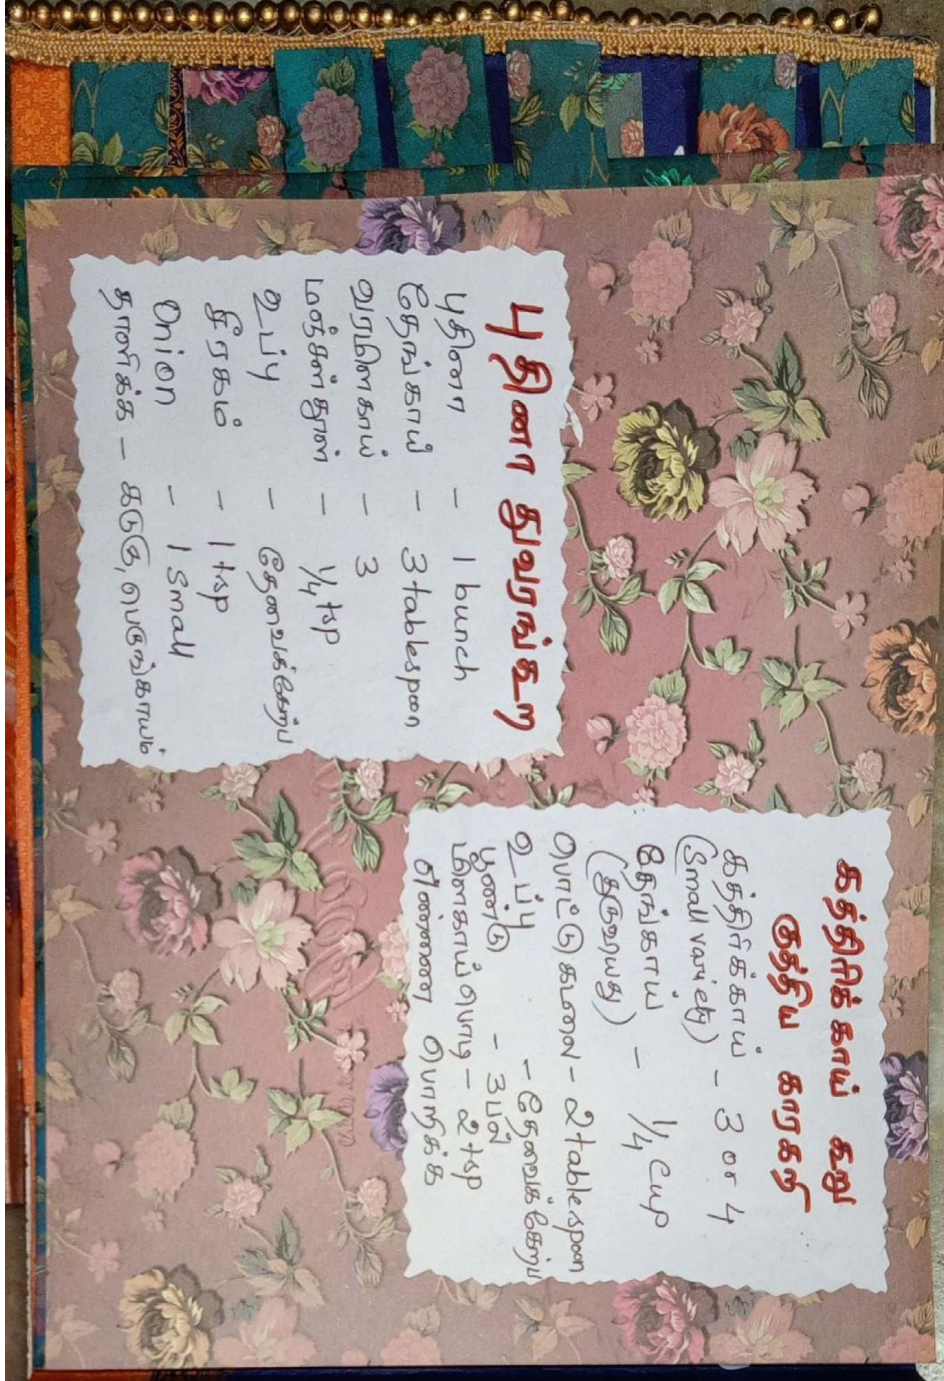 கத்திரிக்காய் கறு
குத்திய காரகறி
கத்திர்க்காய் - 3 or 4
(Small variety)
தேங்காய் - 1/4 Cup
(துருவியது)
பொட்டுகடலை - 2 tablespoon
உப்பு - தேவைக்கேற்ப
பூண்டு - 3 பல்
மிளகாய் பொடி - 2 tsp
எண்ணை பொறிக்க
புதினா துவரங்கூற
புதினா - 1 bunch
தேங்காய் - 3 tablespoon
வரமிளகாய் - 3
மஞ்சள்தூள் - 1/4 tsp
உப்பு - தேவைக்கேற்ப
சீரகம் - 1 tsp
Onion - 1 Small
தாளிக்க - கடுகு, பெருங்காயம்